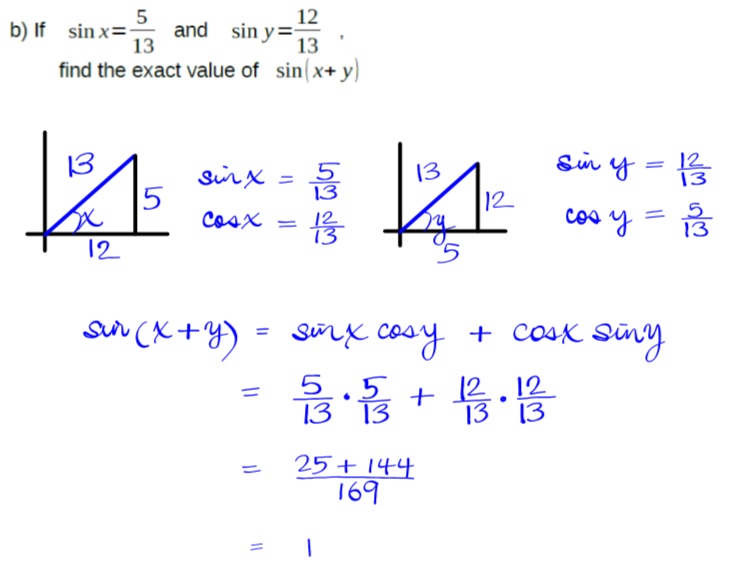 b) If sin x = 5/13 and sin y = 12/13 ,
find the exact value of sin(x + y)
13
5
x
12
sin x = 5/13
cos x = 12/13
13
12
y
5
sin y = 12/13
cos y = 5/13
sin (x + y) = sin x cos y + cos x sin y
= 5/13 · 5/13 + 12/13 · 12/13
= 25 + 144 / 169
= 1